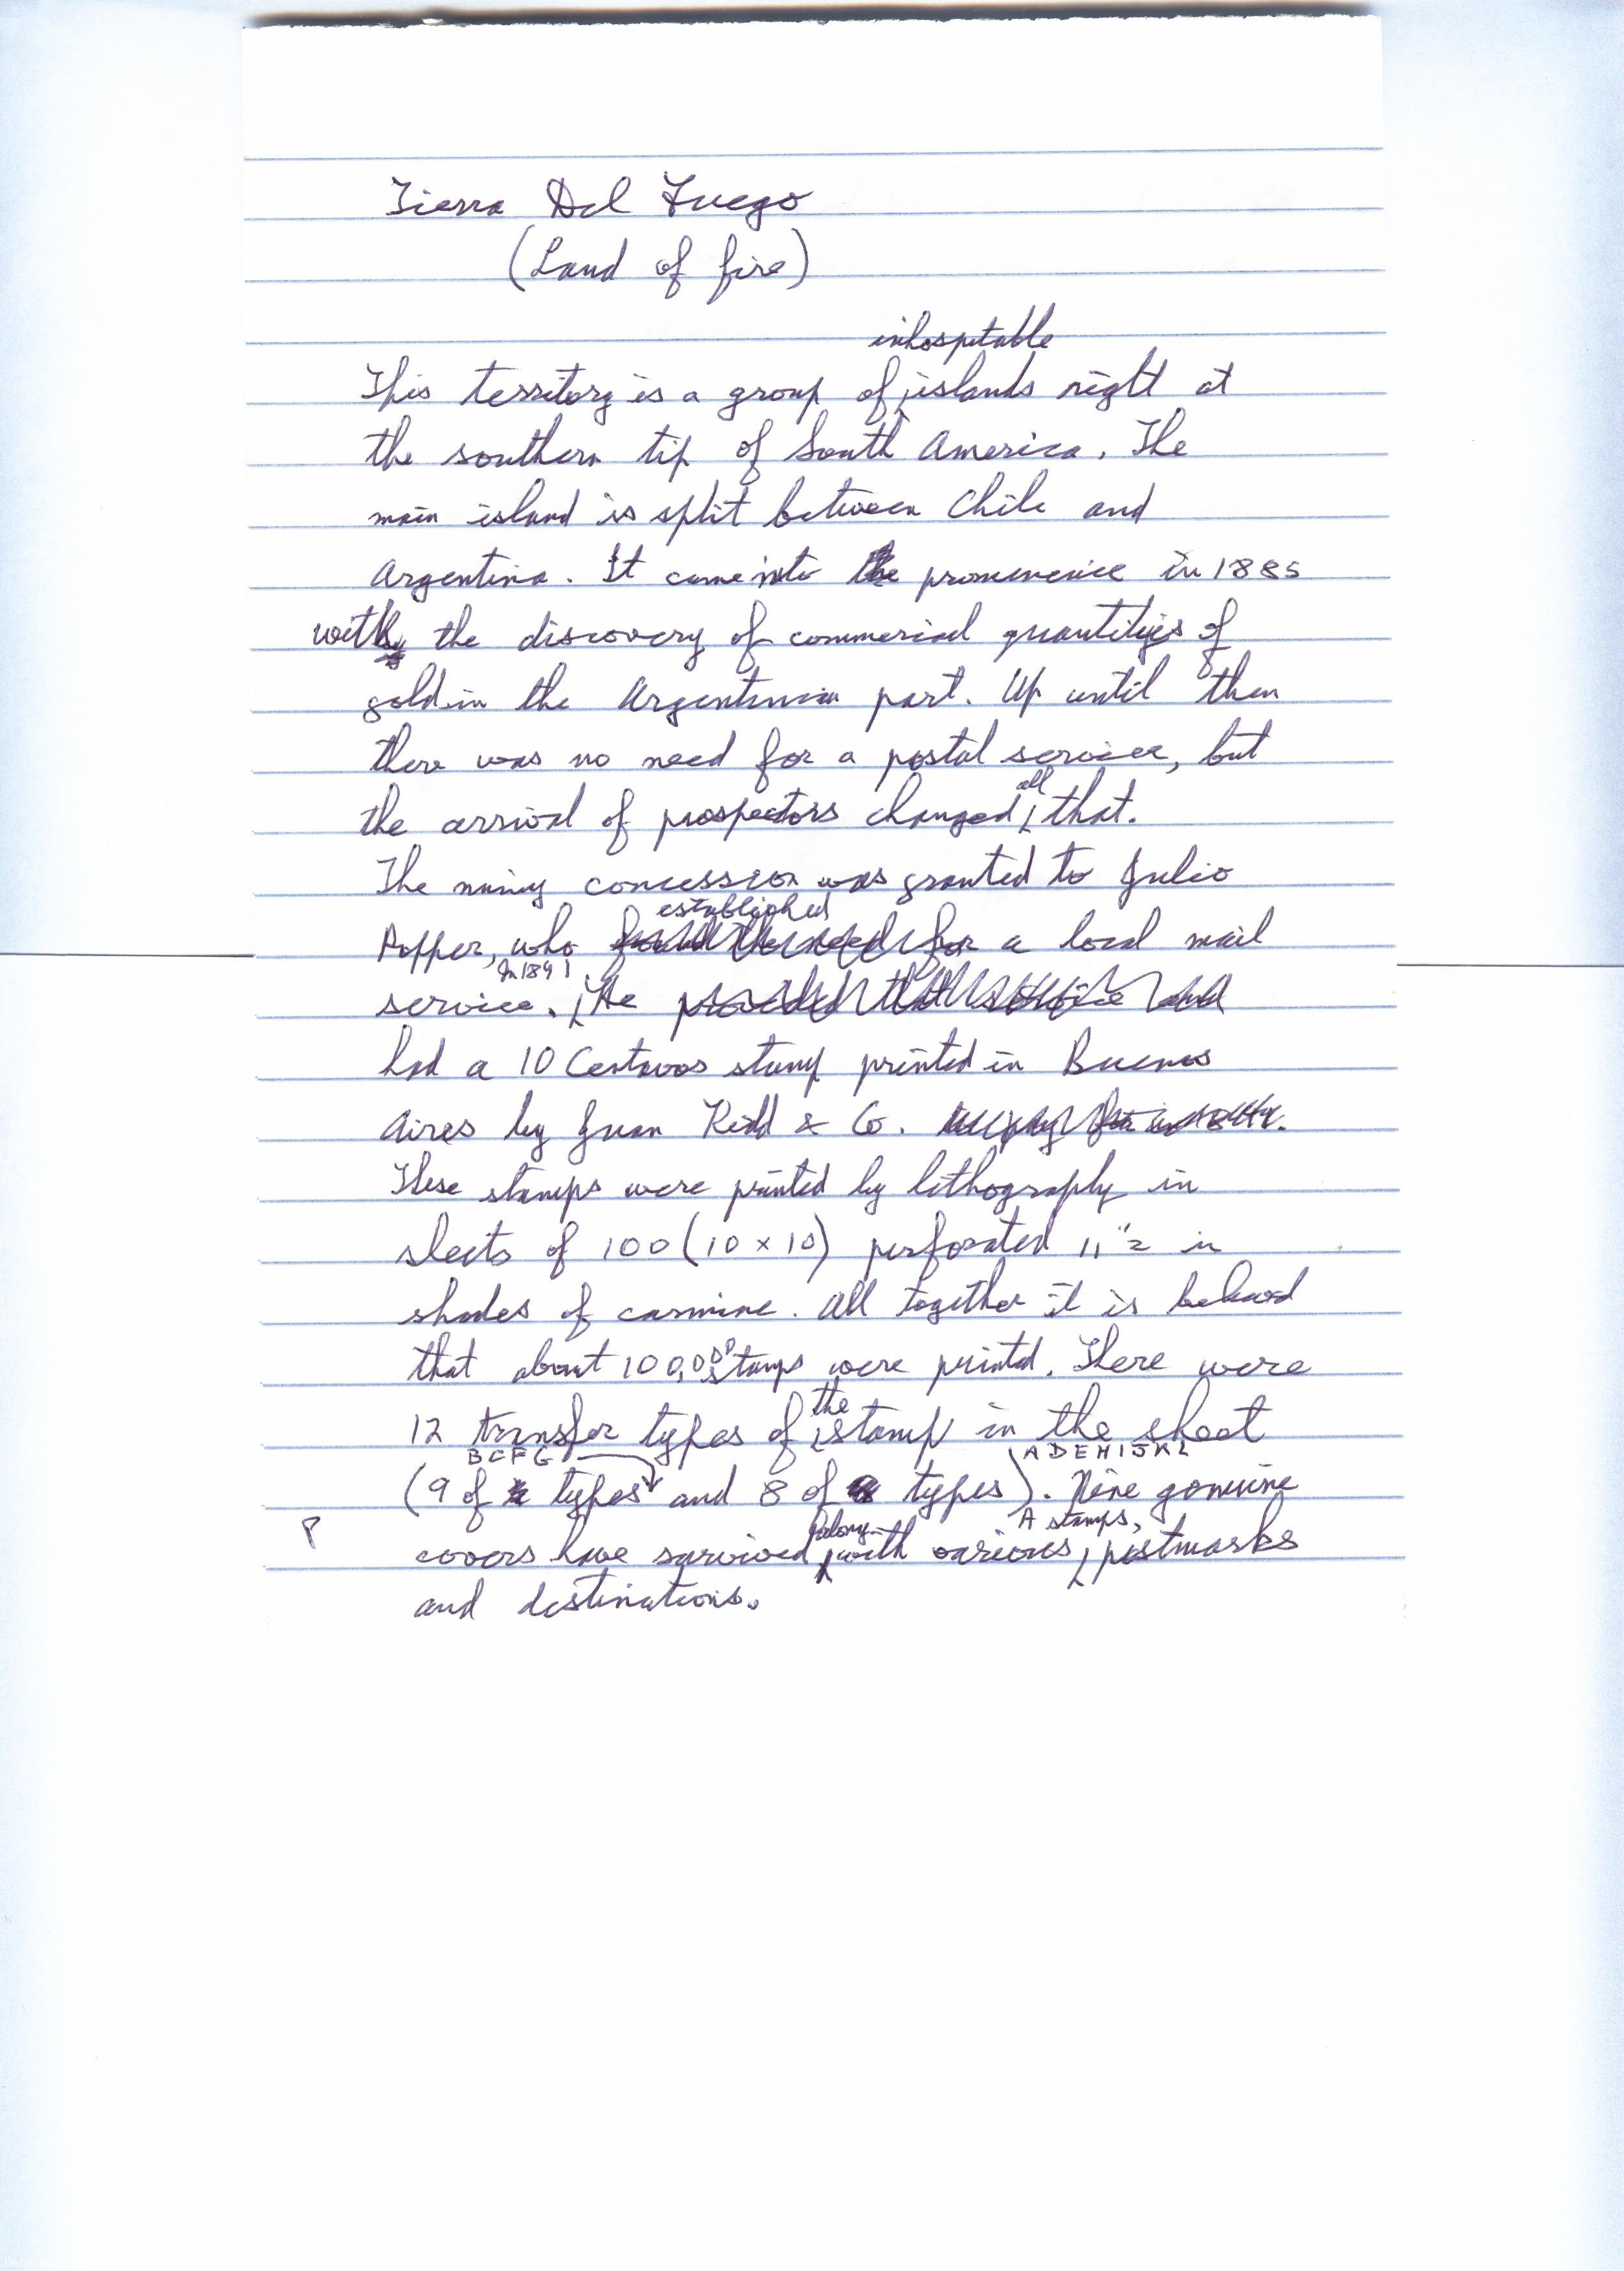 Tierra Del Fuego
(Land of fire)
inhospitable
This territory is a group of islands right at
the southern tip of South America. The
main island is split between Chile and
Argentina. It came into prominence in 1885
with the discovery of commercial quantities of
gold in the Argentinian part. Up until then
there was no need for a postal service, but
all
the arrival of prospectors changed that.
The mining concession was granted to Julio
established
Popper, who a local mail
In 1891
service. He
had a 10 Centavos stamp printed in Buenos
Aires by Juan Kidd & Co.
These stamps were printed by lithography in
sheets of 100 (10 x 10) perforated 11 1/2 in
shades of carmine. All together it is believed
that about 100,000 stamps were printed. There were
the
12 transfer types of stamp in the sheet
B C F G A D E H I J K L
(9 of types and 8 of types). Nine genuine
A stamps,
P
covers have survived with various postmarks
and destinations.